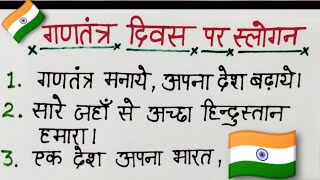 गणतंत्र दिवस पर स्लोगन
1. गणतंत्र मनाये, अपना देश बढ़ाये।
2. सारे जहाँ से अच्छा हिन्दुस्तान
हमारा।
3. एक देश अपना भारत,